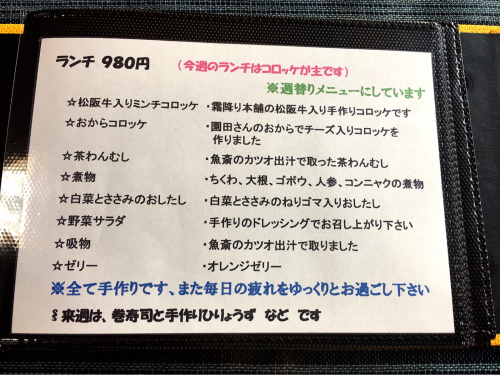 ランチ 980円 （今週のランチはコロッケが主です）
※週替りメニューにしています
☆松阪牛入りミンチコロッケ ・霜降り本舗の松阪牛入り手作りコロッケです
☆おからコロッケ ・園田さんのおからでチーズ入りコロッケを
作りました
☆茶わんむし ・魚斎のカツオ出汁で取った茶わんむし
☆煮物 ・ちくわ、大根、ゴボウ、人参、コンニャクの煮物
☆白菜とささみのおしたし ・白菜とささみのねりゴマ入りおしたし
☆野菜サラダ ・手作りのドレッシングでお召し上がり下さい
☆吸物 ・魚斎のカツオ出汁で取りました
☆ゼリー ・オレンジゼリー
※全て手作りです、また毎日の疲れをゆっくりとお過ごし下さい
§来週は、巻寿司と手作りひりょうず など です